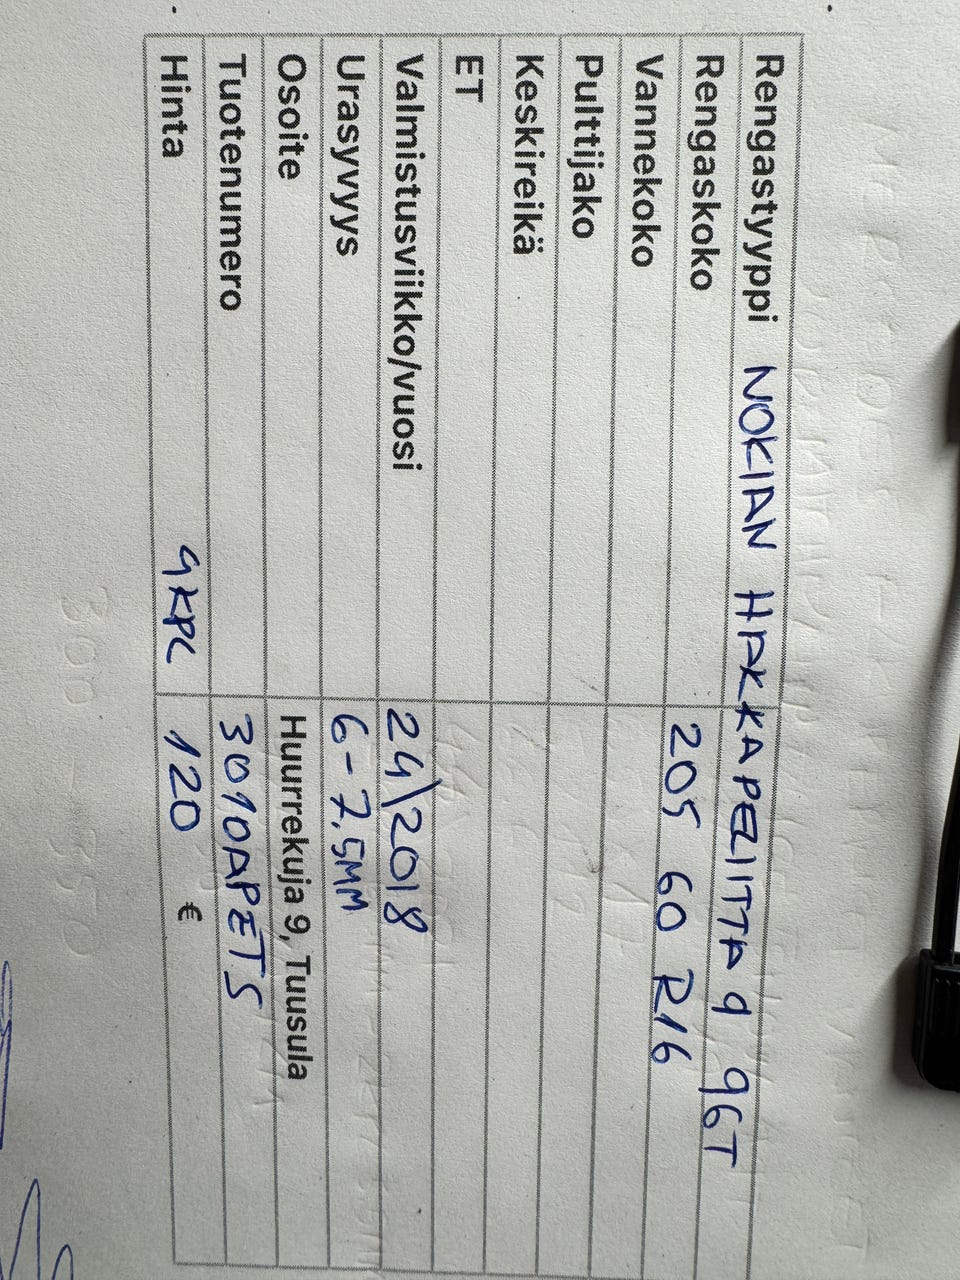 Rengastyyppi NOKIAN HAKKAPELIITTA 9 96T
Rengaskoko 205 60 R16
Vannekoko
Pulttijako
Keskireikä
ET
Valmistusviikko/vuosi 24\2018
Urasyvyys 6-7,5MM
Osoite Huurrekuja 9, Tuusula
Tuotenumero 3010APETS
Hinta 4KPL 120 €